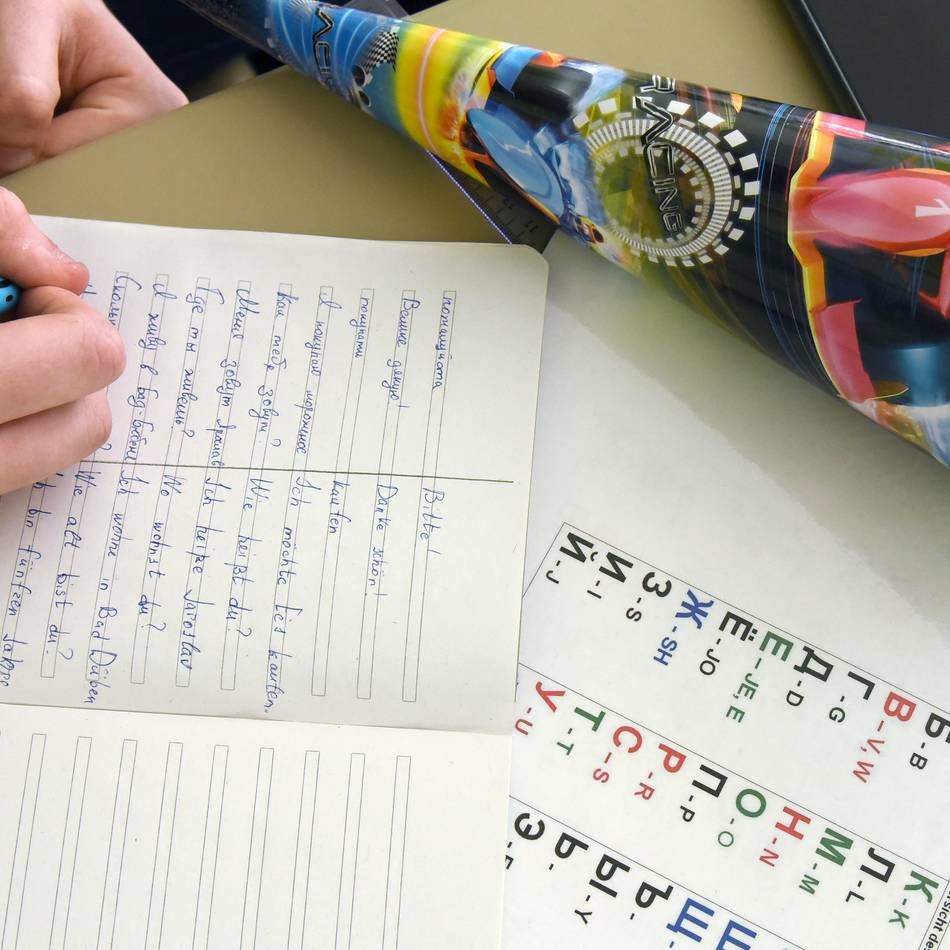 пожалуйста Bitte!
Велике дякую! Danke schön!
покупати kaufen
Я покупаю мороженое Ich möchte Eis kaufen.
Як тебе зовут? Wie heißt du?
Меня зовут Ярослав Ich heiße Jaroslav
Где ты живёшь? Wo wohnst du?
Я живу в Бад-Дюбене Ich wohne in Bad Düben
? Wie alt bist du?
Ich bin fünfzen Jahre
RACING
RACING
1
Б - B
В - V, W
Г - G
Д - D
Е - JE, E
Ё - JO
Ж - SH
З - S
И - I
Й - J
К - K
Л - L
М - M
Н - N
О - O
П - P
Р - R
С - S
Т - T
У - U
Щ
Ъ -
Ы - Y
Ь -
Э - E